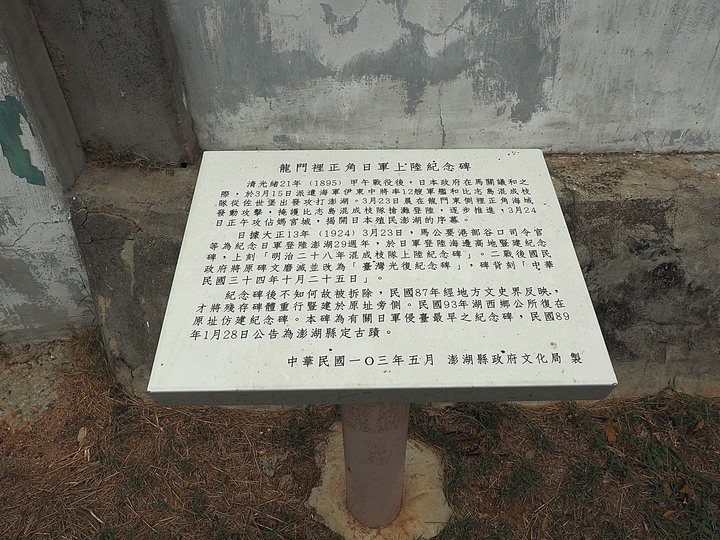 龍門裡正角日軍上陸紀念碑
清光緒21年（1895）甲午戰役後，日本政府在馬關議和之
際，於3月15日派遣海軍伊東中將率12艘軍艦和比志島混成枝
隊從佐世堡出發攻打澎湖。3月23日晨在龍門東側裡正角海域
發動攻擊，掩護比志島混成枝隊搶灘登陸，逐步推進，3月24
日正午攻佔媽宮城，揭開日本殖民澎湖的序幕。
日據大正13年（1924）3月23日，馬公要港部谷口司令官
等為紀念日軍登陸澎湖29週年，於日軍登陸海邊高地豎建紀念
碑，上刻「明治二十八年混成枝隊上陸紀念碑」。二戰後國民
政府將原碑文磨滅並改為「臺灣光復紀念碑」，碑背刻「中華
民國三十四年十月二十五日」。
紀念碑後不知何故被拆除，民國87年經地方文史界反映，
才將殘存碑體重行豎建於原址旁側。民國93年湖西鄉公所復在
原址仿建紀念碑。本碑為有關日軍侵臺最早之紀念碑，民國89
年1月28日公告為澎湖縣定古蹟。
中華民國一〇三年五月 澎湖縣政府文化局 製